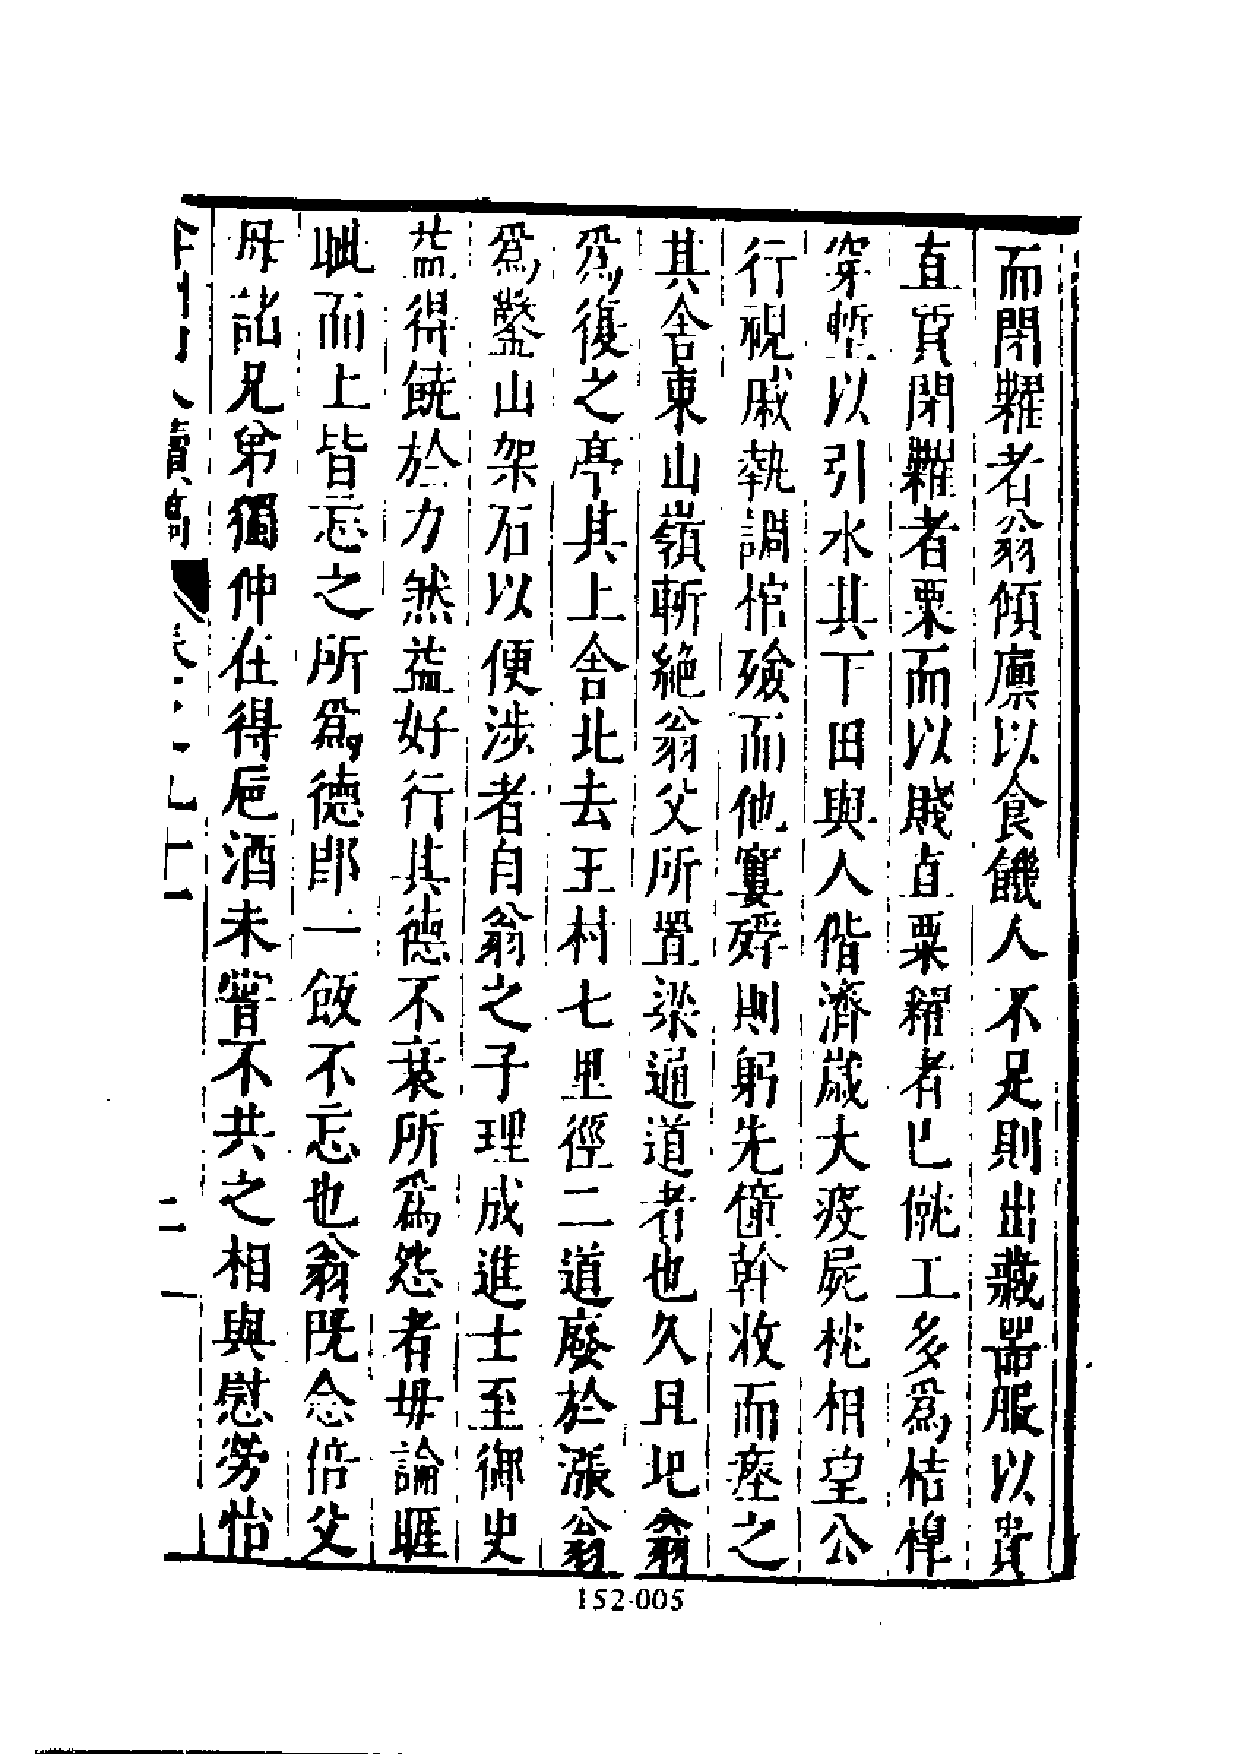 而閉糴者翁傾廪以食饑人不足則出藏器服以貴
直貿閉糴者粟而以賤直粟糴者已僦工多爲桔槹
穿塹以引水其下田與人偕濟歲大疫屍枕相望公
行視戚執調棺殮而他寠殍則躬先僮幹收而瘞之
其舍東山嶺斬絶翁父所置梁通道者也久且圯翁
爲復之亭其上舍北去王村七里徑二道廢於漲翁
爲鑿山架石以便涉者自翁之子理成進士至御史
益得饒於力然益好行其德不衰所爲怨者毋論睚
眦而上皆忘之所爲德郎一飯不忘也翁既念倍父
母諸兄弟獨仲在得巵酒未甞不共之相與慰勞怡
續稿
二
152-005